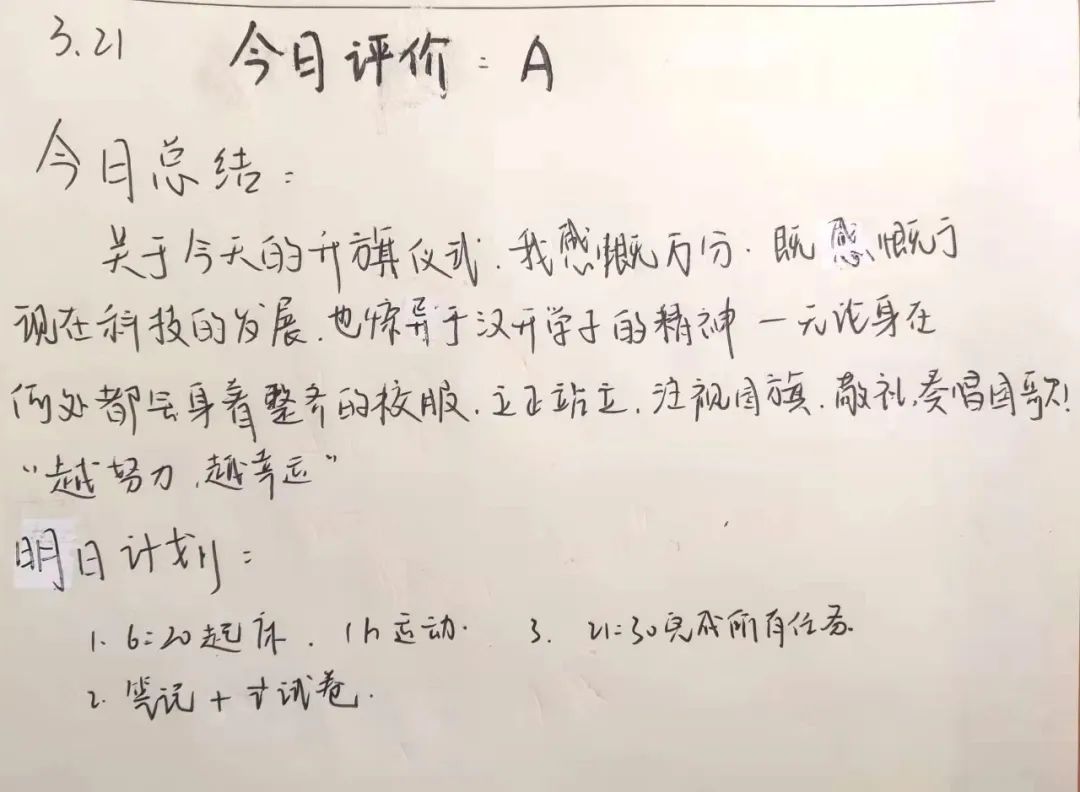 3.21 今日评价：A
今日总结：
关于今天的升旗仪式，我感慨万分.既感慨于
现在科技的发展，也惊异于汉开学子的精神一无论身在
何处都会身着整齐的校服，立正站立，注视国旗，敬礼，奏唱国歌！
"越努力，越幸运"
明日计划：
1. 6:20起床，1h运动. 3. 21:30完成所有任务.
2. 笔记+试卷.